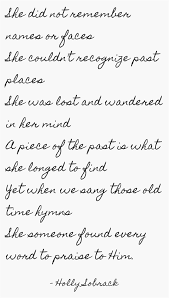 She did not remember
names or faces
She couldn't recognize past
places
She was lost and wandered
in her mind
A piece of the past is what
she longed to find
Yet when we sang those old
time hymns
She someone found every
word to praise to Him.
- HollySobrack